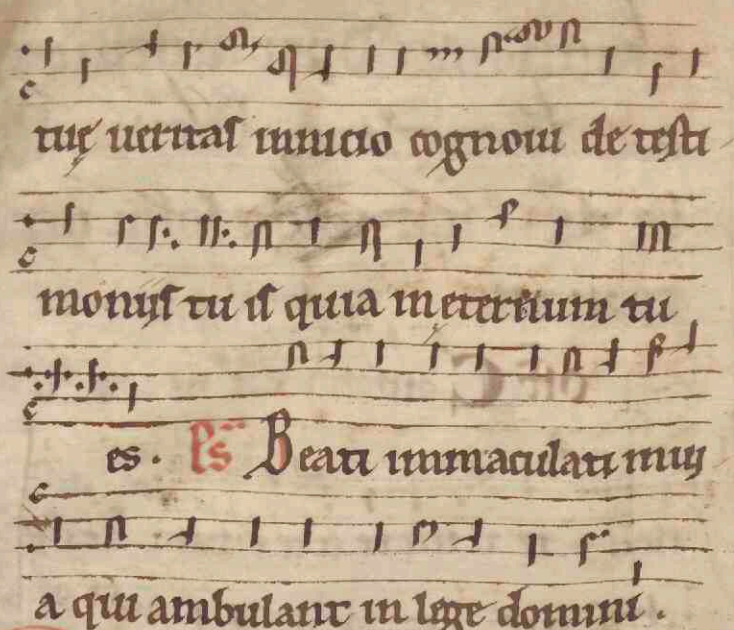 tuę ueritas inuicio cognoui de testi
monijs tu is quia in ęternum tu
es. Ps Beati immaculati inuij
a qui ambulant in lege domini.